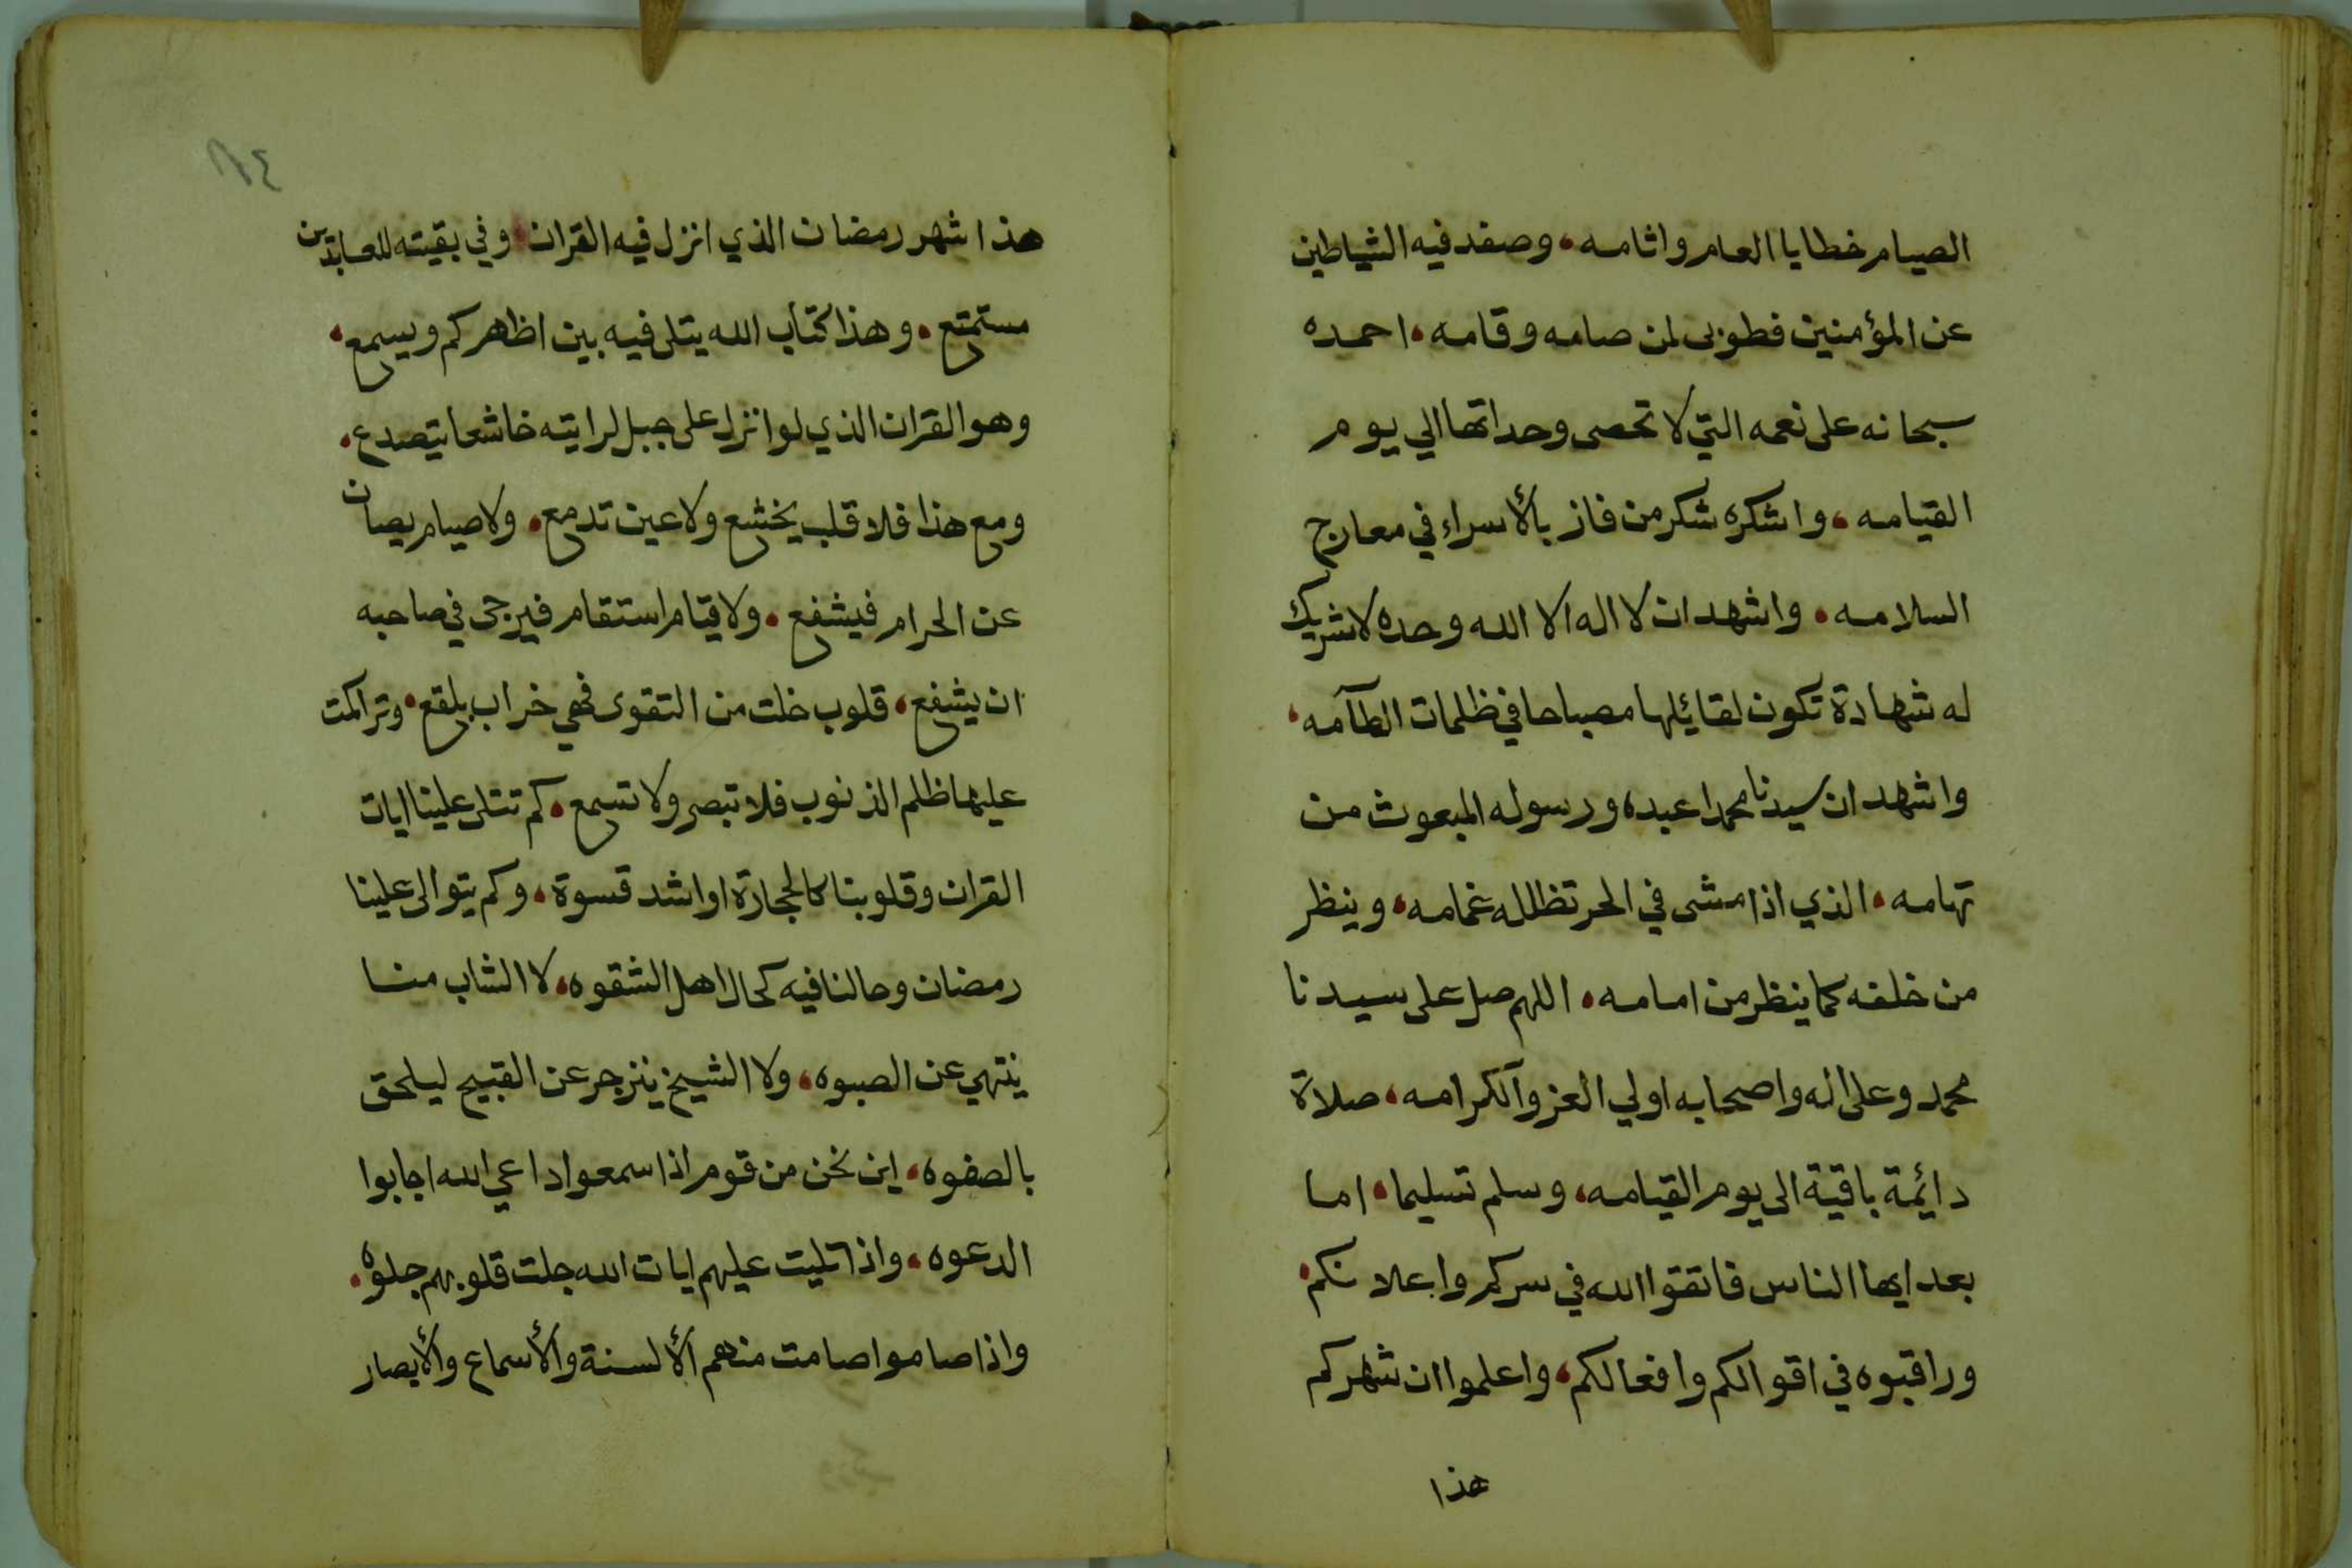 الصيام خطايا العام واثامه، وصفد فيه الشياطين
عن المؤمنين فطوبى لمن صامه وقامه، احمده
سبحانه على نعمه التي لا تحصى وحداتها الي يوم
القيامه، واشكره شكر من فاز بالأسراء في معارج
السلامه، واشهد ان لا اله الا الله وحده لا شريك
له شهادة تكون لقائلها مصباحا في ظلمات الطآمه،
واشهد ان سيدنا محمدا عبده ورسوله المبعوث من
تهامه، الذي اذا مشى في الحر تظلله غمامه، وينظر
من خلفه كما ينظر من امامه، اللهم صل على سيدنا
محمد وعلى اله واصحابه اولي العز والكرامه، صلاة
دائمة باقية الى يوم القيامه، وسلم تسليما، اما
بعد ايها الناس فاتقوا الله في سركم واعلانكم،
وراقبوه في اقوالكم وافعالكم، واعلموا ان شهركم
هذا
١٨٤
هذا شهر رمضان الذي انزل فيه القران، وفي بقيته للعابدين
مستمتع، وهذا كتاب الله يتلى فيه بين اظهركم ويسمع،
وهو القران الذي لو انزل على جبل لرايته خاشعا يتصدع،
ومع هذا فلا قلب يخشع ولا عين تدمع، ولا صيام يصان
عن الحرام فيشفع، ولا قيام استقام فيرجى في صاحبه
ان يشفع، قلوب خلت من التقوى فهي خراب بلقع، وتراكمت
عليها ظلم الذنوب فلا تبصر ولا تسمع، كم تتلى علينا ايات
القران وقلوبنا كالحجارة او اشد قسوة، وكم يتوالى علينا
رمضان وحالنا فيه كحال اهل الشقوه، لا الشاب منا
ينتهي عن الصبوه، ولا الشيخ ينزجر عن القبيح ليلحق
بالصفوه، اين نحن من قوم اذا سمعوا داعي الله اجابوا
الدعوه، واذا تليت عليهم ايات الله جلت قلوبهم جلوه،
واذا صاموا صامت منهم الألسنة والأسماع والأبصار